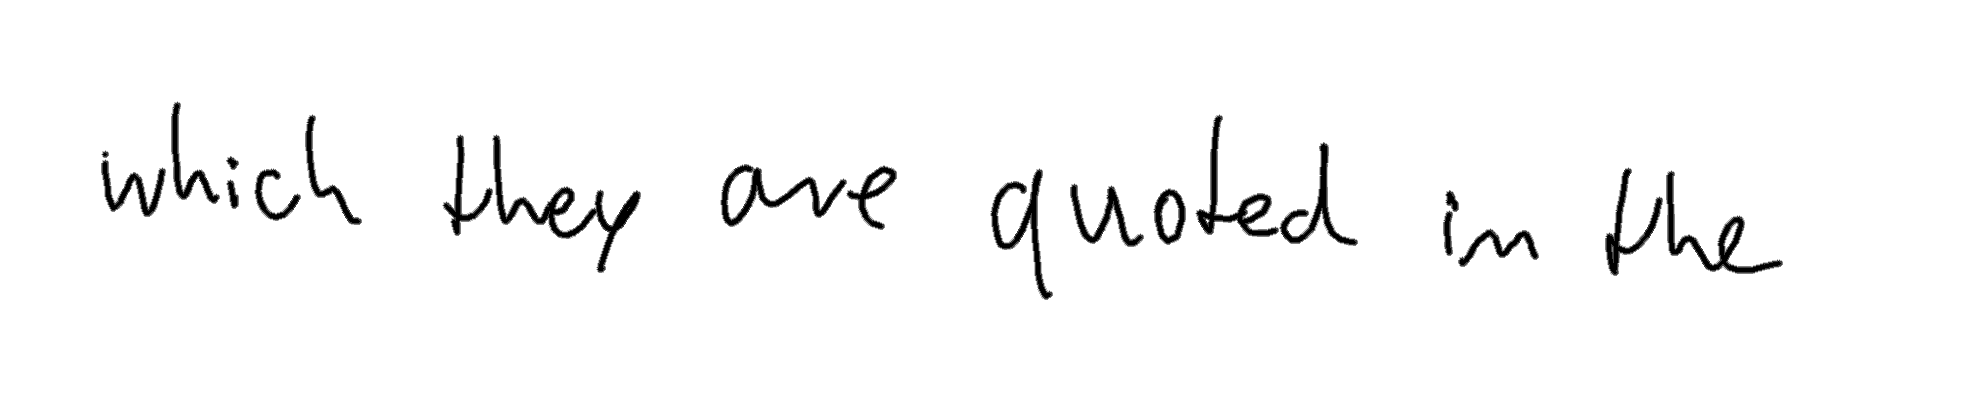 which they are quoted in the